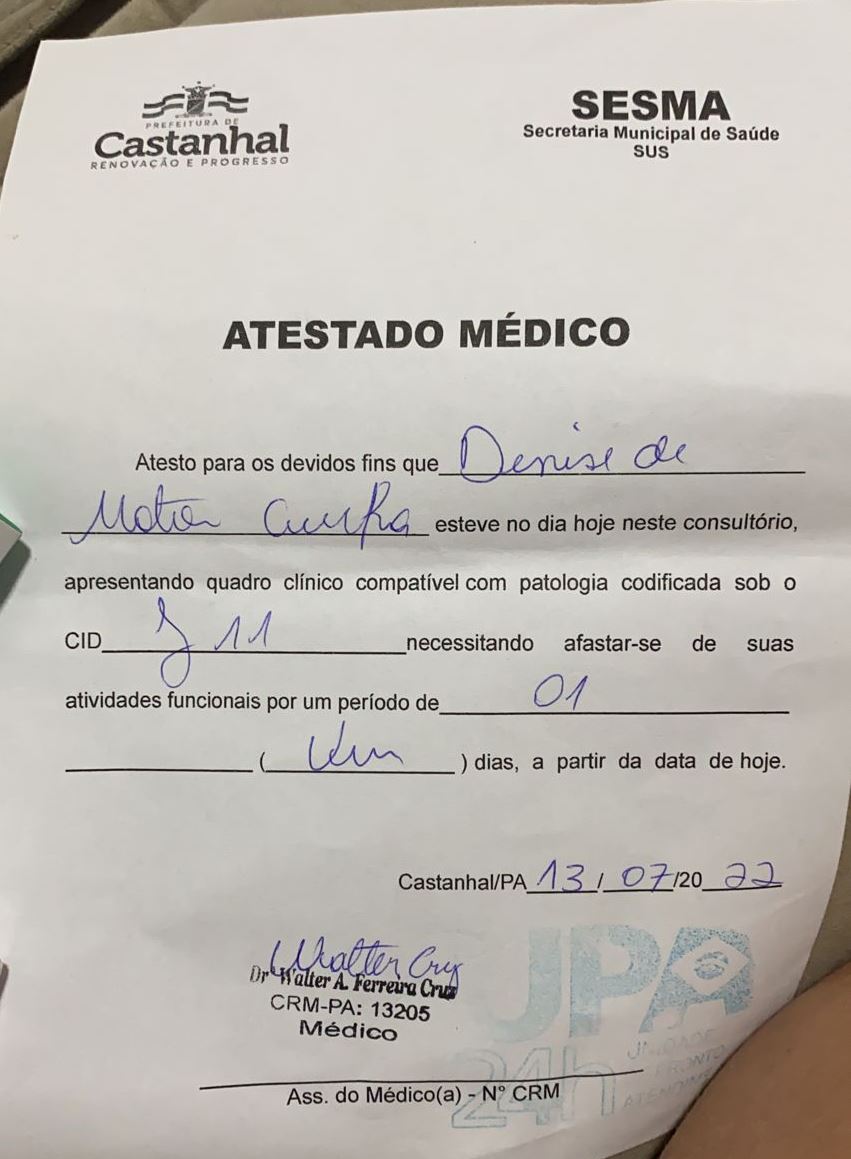 PREFEITURA DE
Castanhal
RENOVAÇÃO E PROGRESSO
SESMA
Secretaria Municipal de Saúde
SUS
ATESTADO MÉDICO
Atesto para os devidos fins que Denise de
Mota Cunha esteve no dia hoje neste consultório,
apresentando quadro clínico compatível com patologia codificada sob o
CID J 11 necessitando afastar-se de suas
atividades funcionais por um período de 01
( Um ) dias, a partir da data de hoje.
Castanhal/PA 13/07/2022
Walter Cruz
Dr Walter A. Ferreira Cruz
CRM-PA: 13205
Médico
UPA
24h
UNIDADE
PRONTO
ATENDIMENTO
Ass. do Médico(a) - N° CRM